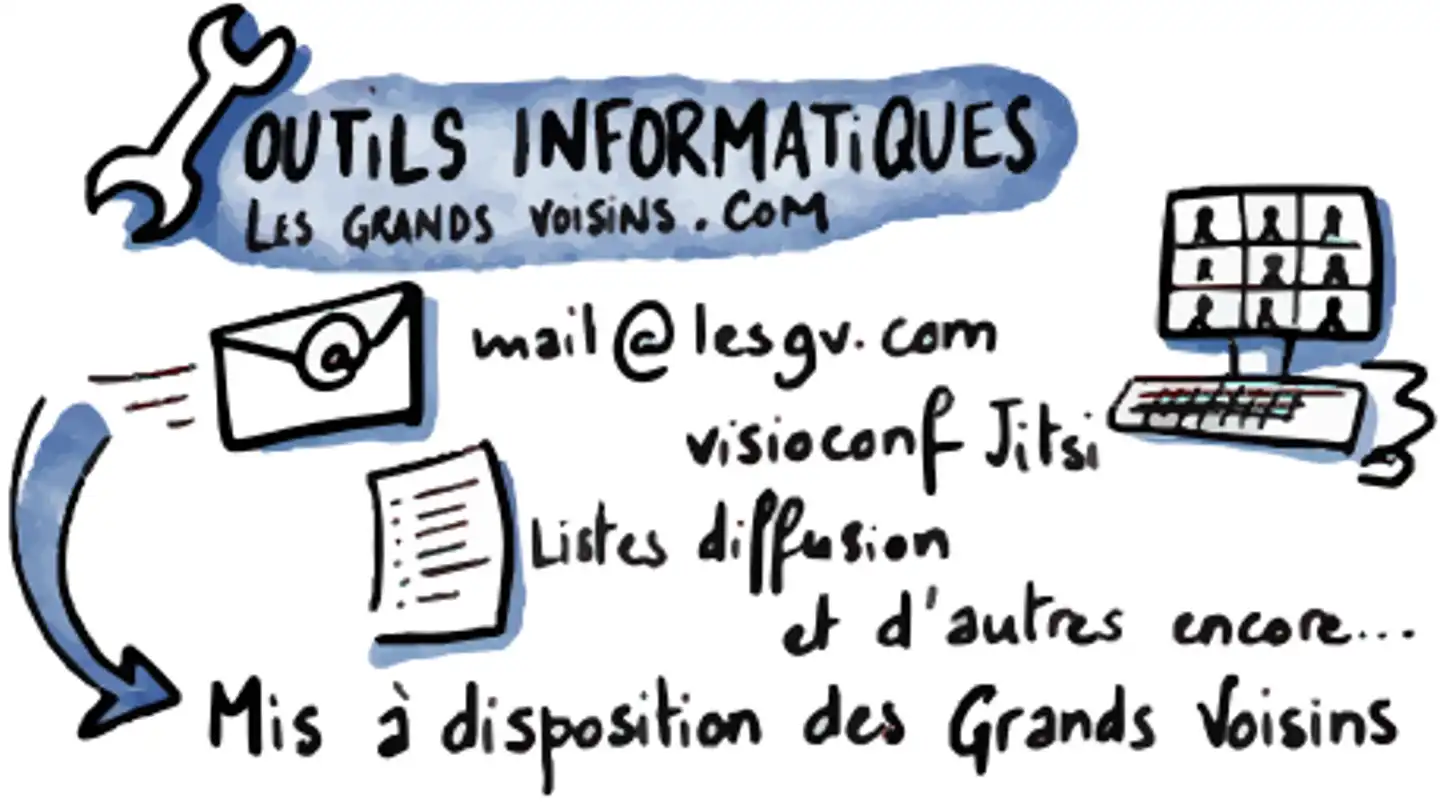 OUTiLS INFORMATiQUES
LES GRANDS VOISINS.COM
mail@lesgv.com
visioconf Jitsi
Listes diffusion
et d'autres encore...
Mis à disposition des Grands Voisins